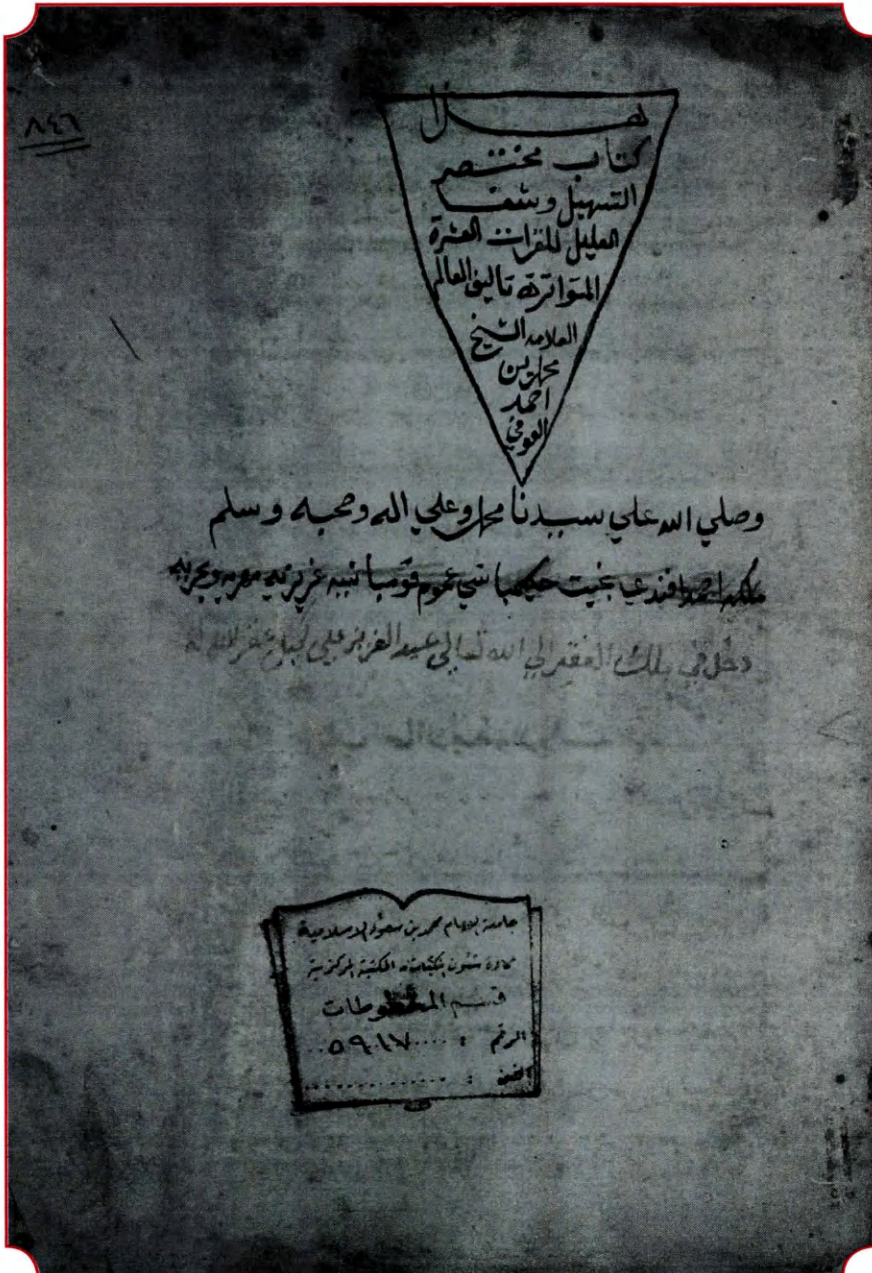 ٨٤٦
هذا
كتاب مختصر
التسهيل وشفا
العليل للقرات العشرة
المتواتره تاليف العالم
العلامه الشيخ
محمد بن
احمد
العوفي
وصلي الله علي سيدنا محمد وعلي اله وصحبه وسلم
احمد افندي بخيت حكيمباشي عموم
دخل في ملك الفقير الي الله تعالى عبد العزيز علي غفر الله له
جامعة الإمام محمد بن سعود الإسلامية
عمادة شئون المكتبات المكتبة المركزية
قسم المخطوطات
الرقم : ٥٩١٧
الفن :